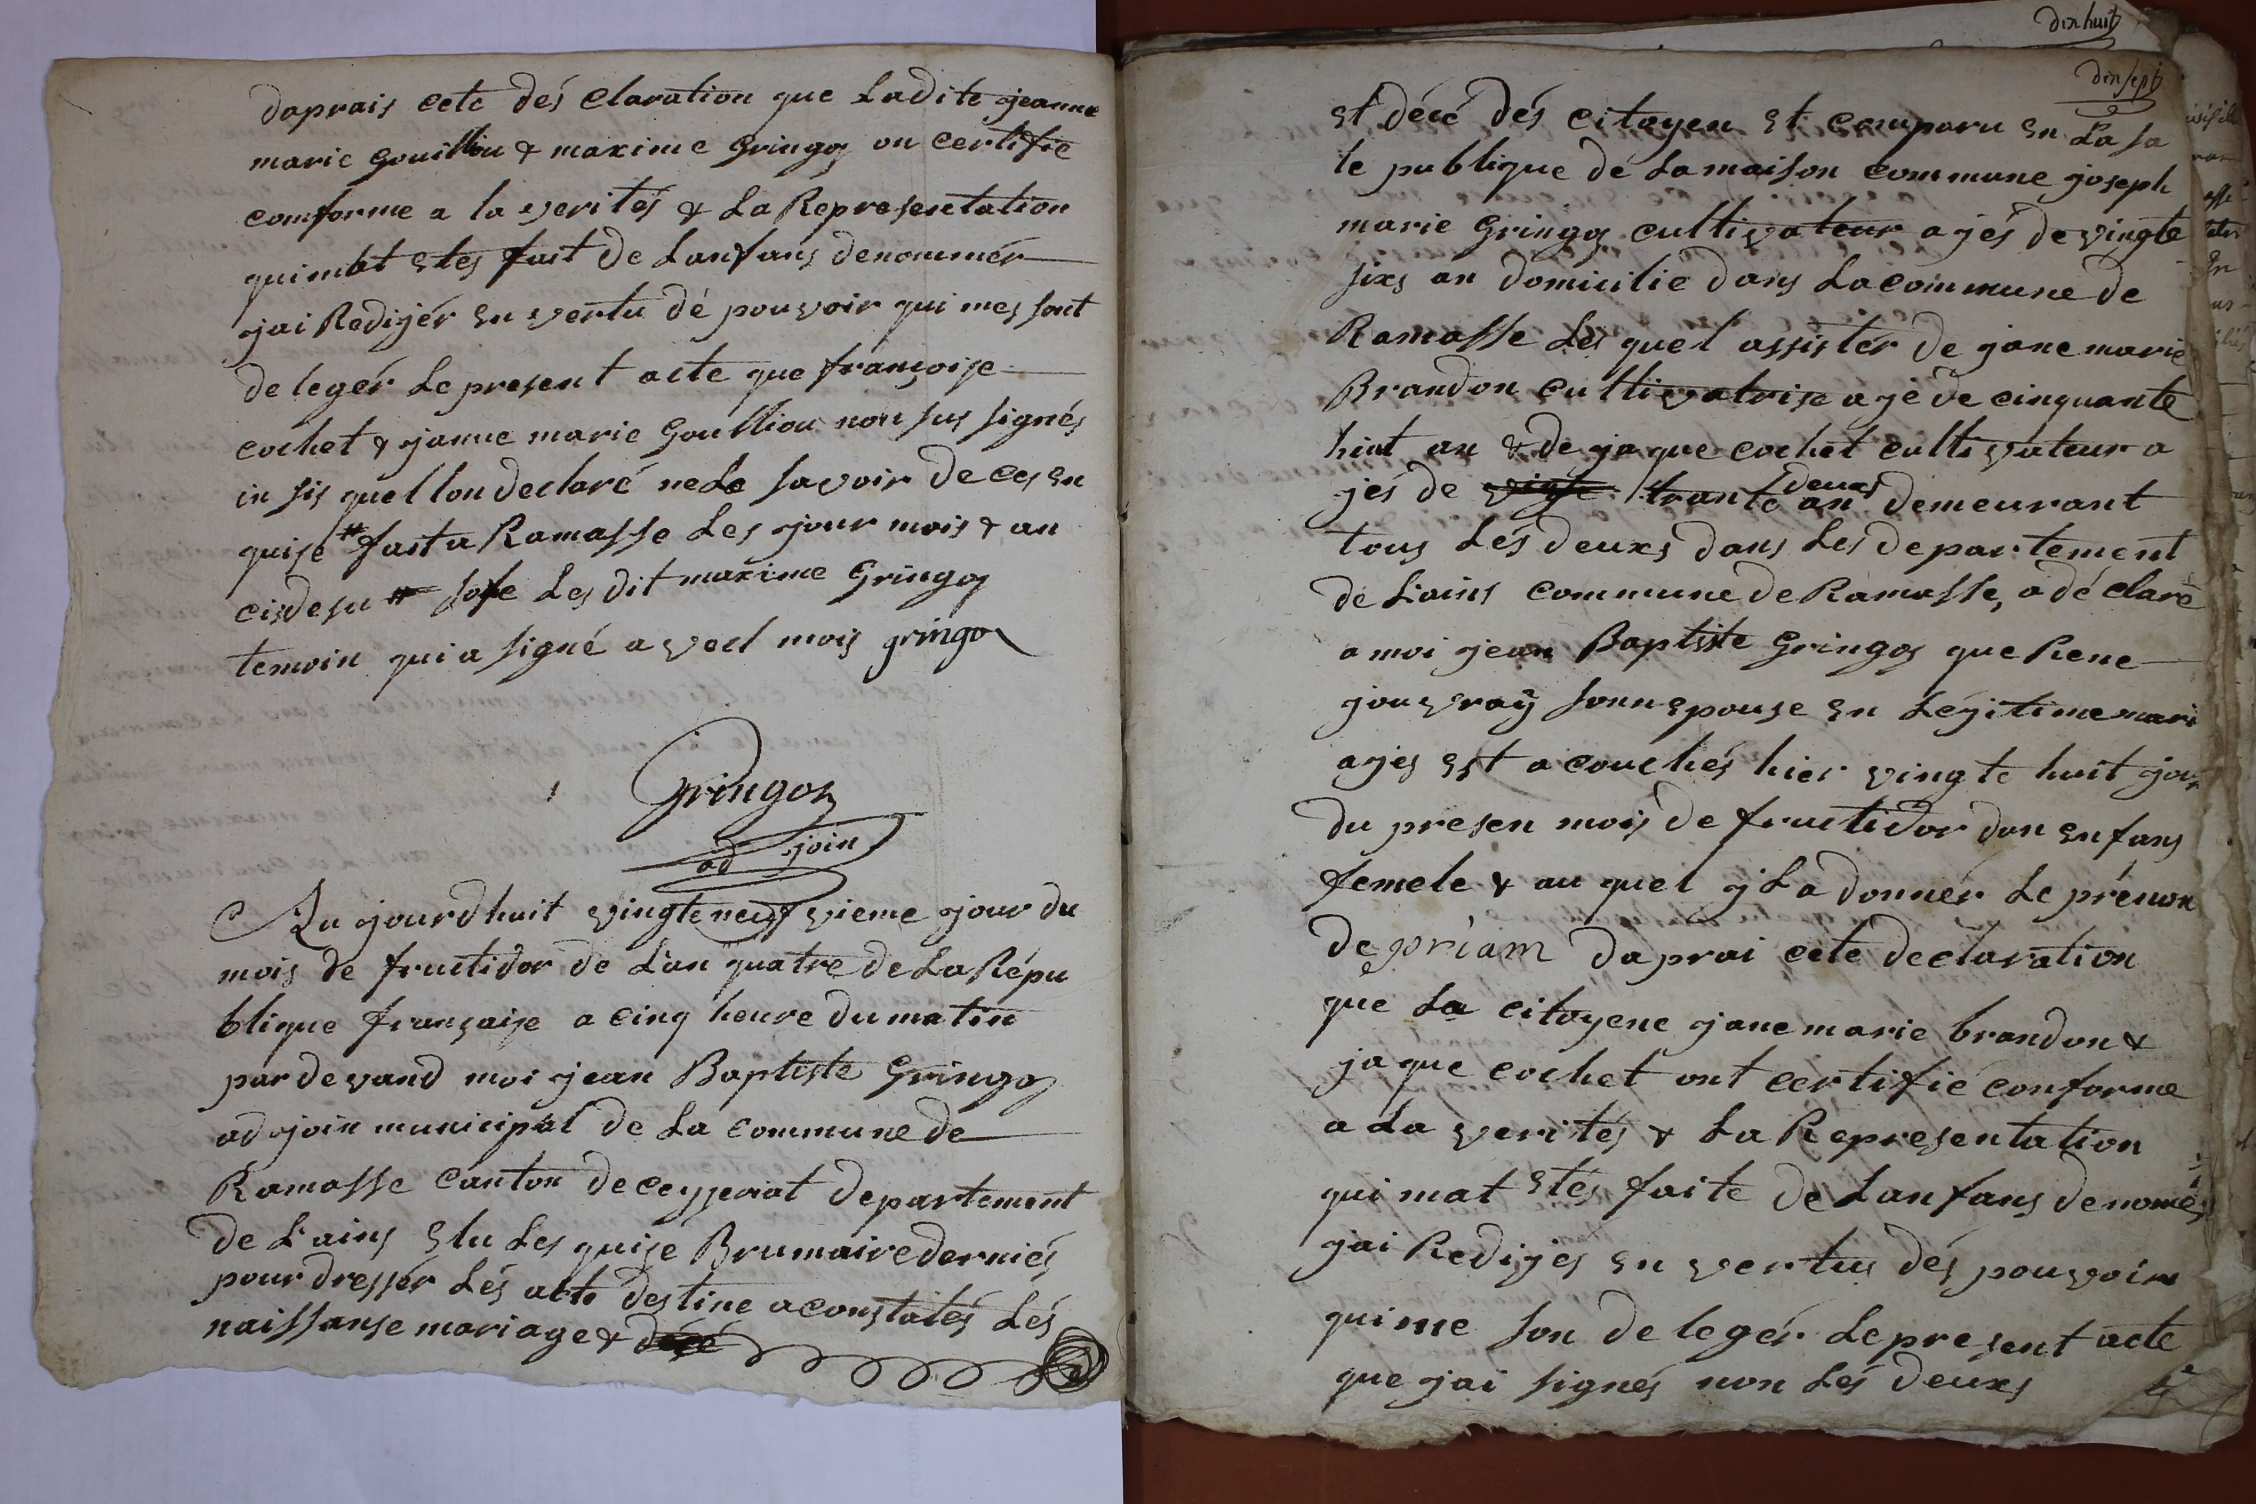 daprais cete dés claration que Ladite jeanne
marie gouilliou & maxime Gringoz on certifié
comforme a la verités & La Representation
qui mat etes fait de Lanfans denommér
jai Redigér en vertu dé pouvoir qui mes sont
de legér Le present acte que françoise
cochet & janne marie Goulliou non sus signés
in sis quel lon declaré ne Le savoir de ces en
quise # fait a Ramasse Les jour mois & an
cis desu # sofe Les dit maxime Gringoz
temoin qui a signé avecl mois gringoz
Gringoz
ad join
Au jourdhuit vingte neuf vieme jour du
mois de fructidor de L'an quatre de La Répu
blique française a cinq heure du matin
par devand moi jean Baptiste Gringoz
adjoin municipal de La commune de
Ramasse canton de ceyzeriat departement
de L'ains elu Les quise Brumaire derniés
pour dressér Lés acte destine a constatés Lés
naissanse mariage & décé
dix huit
dix sept
et décé dés citoyen et comparu en La sa
le publique de La maison commune joseph
marie Gringoz cultivateur ajés de vingte
sixs an domicilie dans La commune de
Ramasse Les quel assistér de jane marie
Brandon cultivatrise ajé de cinquante
huit an & de ja que cochet cultivateur a
deuxs
jés de vigte trante an demeurant
tous Lés deuxs dans Les departement
de L'ains commune de Ramasse, a dé claré
a moi jean Baptiste Gringoz que Rene
jouvray sonn epouse en Légitime mari
ajes est a couchés hier vingte huit jour
du presen mois de fructidor dun enfans
femele & au quel jl a donnér Le prénon
de priam daprai cete declaration
que La citoyene jane marie brandon &
ja que cochet ont certifié conforme
a La verités & La Representation
qui mat etés faite de Lanfans denomés
jai Redijes en vertus dés pouvoir
qui me son de legér Le present acte
que jai signés non Lés deuxs